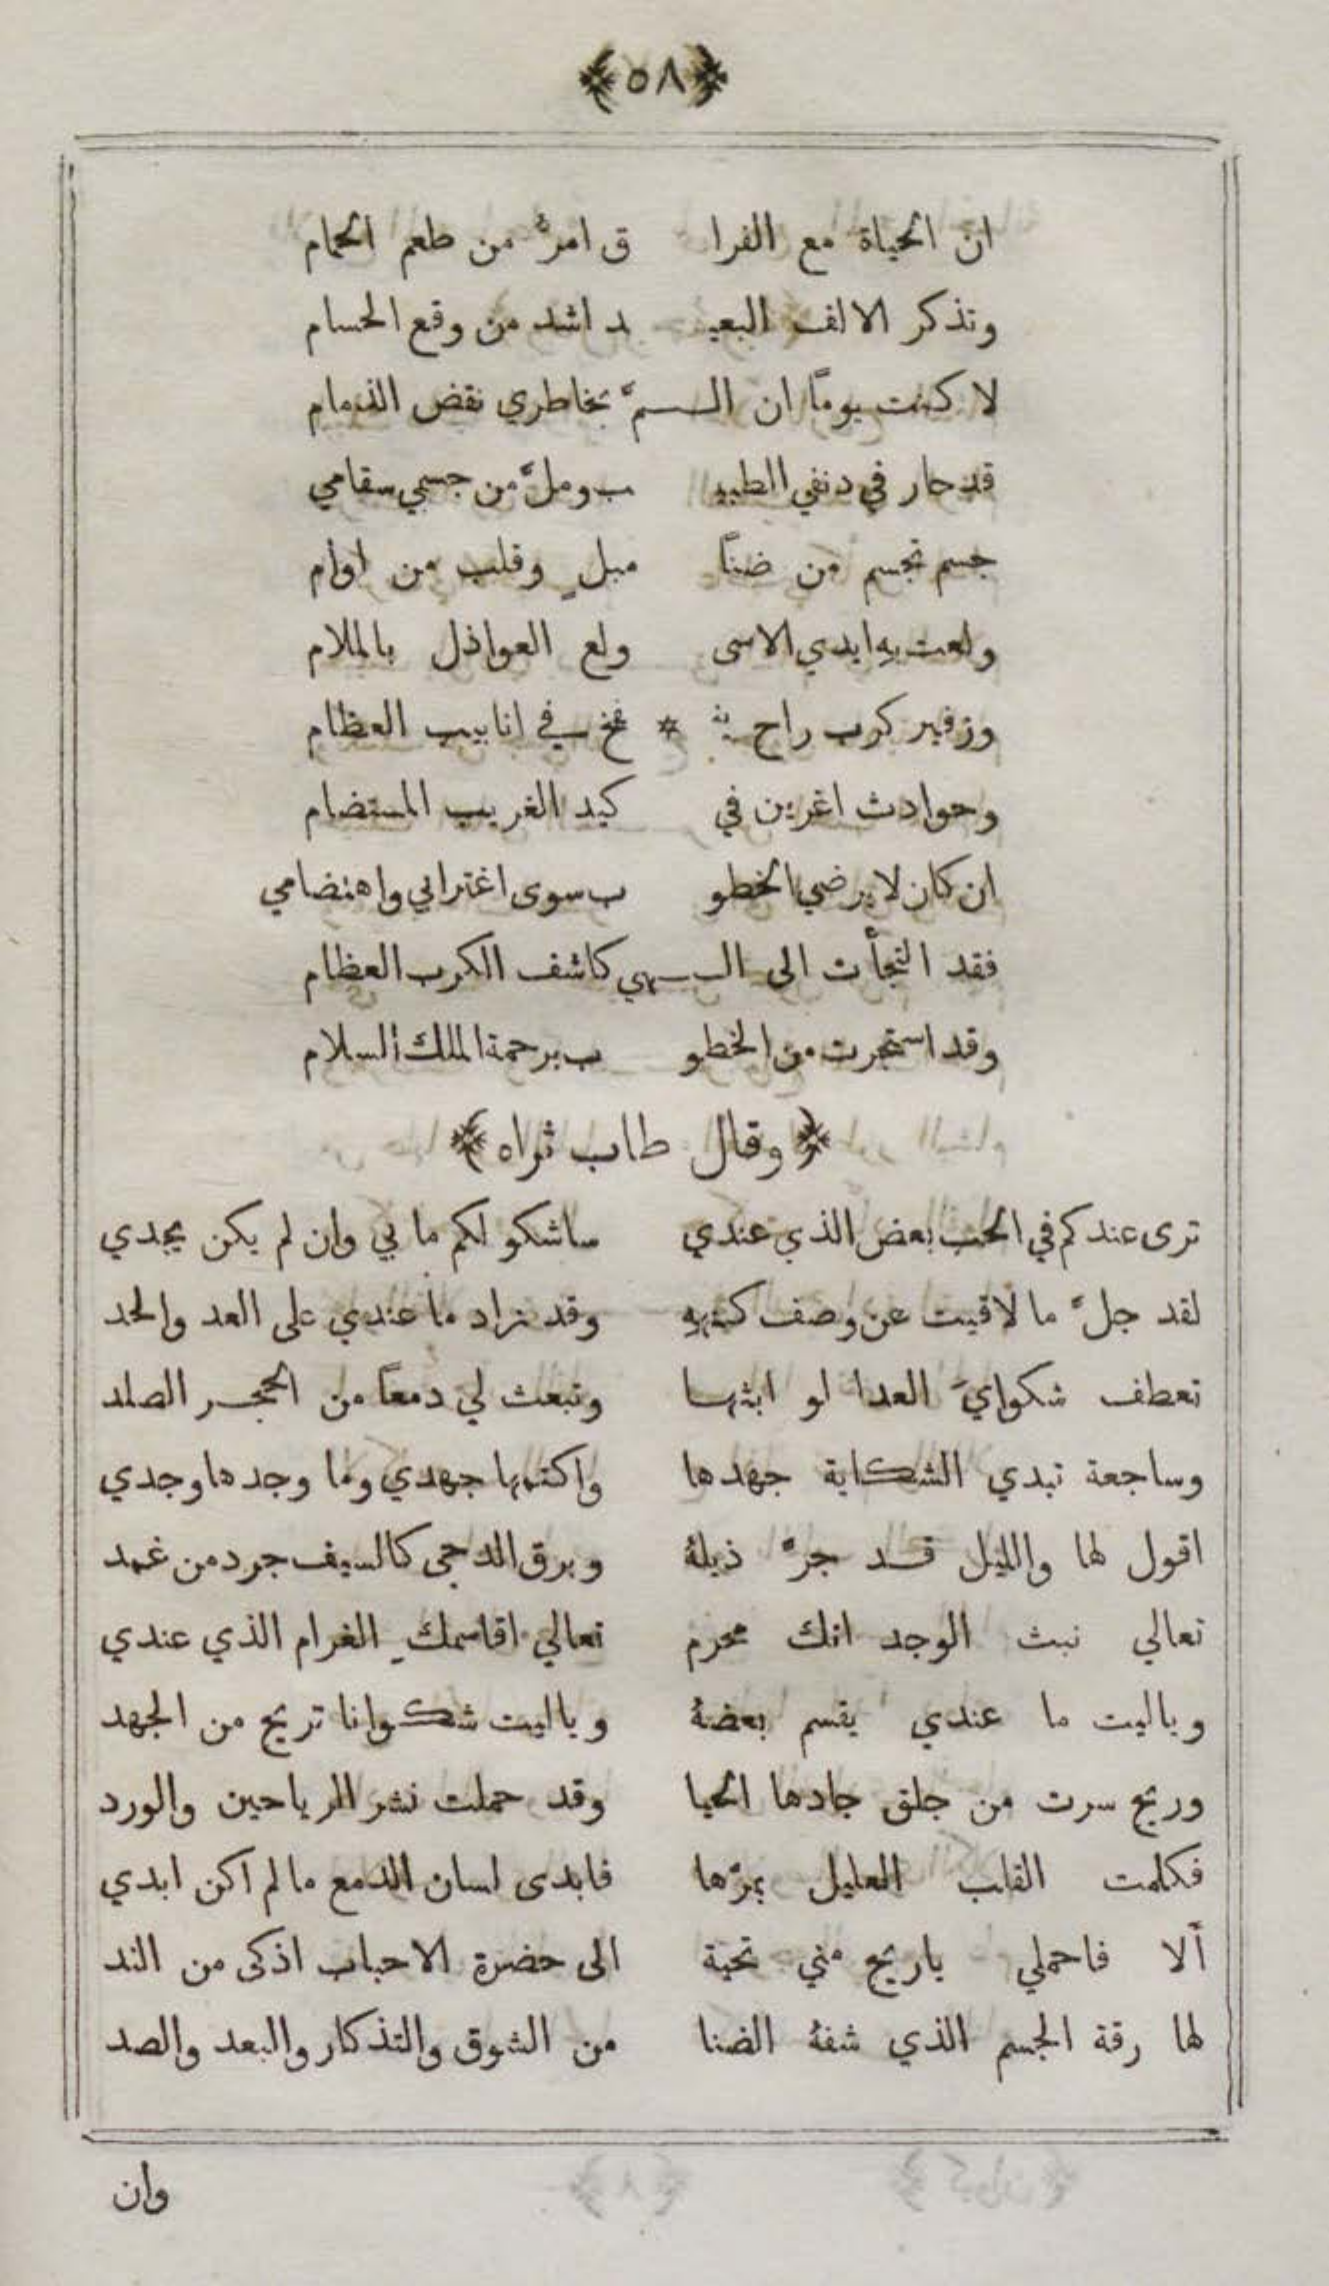 ﴿٥٨﴾
ان الحياة مع الفرا ق امرّ من طعم الحمام
وتذكر الالف البعيـ ـد اشد من وقع الحسام
لا كنت يوماً ان الــــمّ بخاطري نقض الذمام
قد حار في دنفي الطبيـ ـب وملّ من جسمي سقامي
جسم تجسم من ضناً مبلٍ وقلب من اوام
ولعت بهِ ايدي الاسى ولع العواذل بالملام
وزفير كرب راح ينـ * ـفخ في انابيب العظام
وحوادث اغرين في كيد الغريب المستضام
ان كان لا يرضي الخطو ب سوى اغترابي واهتضامي
فقد التجأت الى الــــهي كاشف الكرب العظام
وقد استجرت من الخطو ب برحمة الملك السلام
﴿ وقال طاب ثراه ﴾
ترى عندكم في الحب بعض الذي عندي ساشكو لكم ما بي وان لم يكن يجدي
لقد جلّ ما لاقيت عن وصف كنههِ وقد زاد ما عندي على العد والحد
تعطف شكوايَ العدا لو ابثها وتبعث لي دمعاً من الحجر الصلد
وساجعة تبدي الشكاية جهدها واكتمها جهدي وما وجدها وجدي
اقول لها والليل قد جرّ ذيلهُ وبرق الدجى كالسيف جرد من غمد
تعالي نبث الوجد انك محرم تعالي اقاسمكِ الغرام الذي عندي
وياليت ما عندي يقسم بعضهُ وياليت شكوانا تريح من الجهد
وريح سرت من جلق جادها الحيا وقد حملت نشر الرياحين والورد
فكلمت القلب العليل بمرّها فابدى لسان الدمع ما لم اكن ابدي
ألا فاحملي ياريح مني تحية الى حضرة الاحباب اذكى من الند
لها رقة الجسم الذي شفهُ الضنا من الشوق والتذكار والبعد والصد
وان